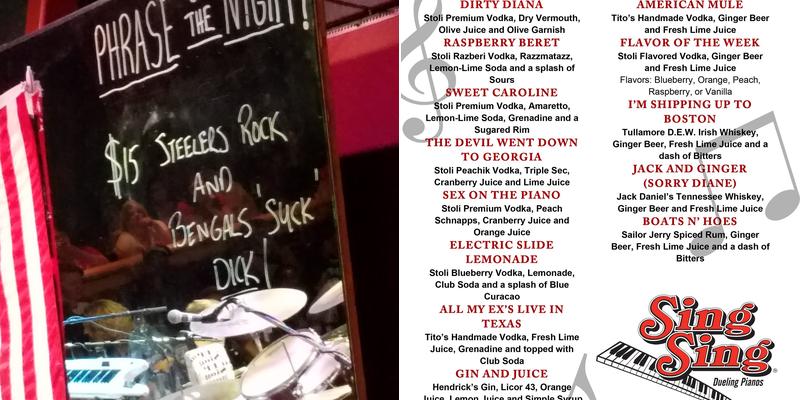 PHRASE OF THE NIGHT!
$15 STEELERS ROCK
AND
BENGALS 'SUCK'
DICK!
DIRTY DIANA
Stoli Premium Vodka, Dry Vermouth,
Olive Juice and Olive Garnish
RASPBERRY BERET
Stoli Razberi Vodka, Razzmatazz,
Lemon-Lime Soda and a splash of
Sours
SWEET CAROLINE
Stoli Premium Vodka, Amaretto,
Lemon-Lime Soda, Grenadine and a
Sugared Rim
THE DEVIL WENT DOWN
TO GEORGIA
Stoli Peachik Vodka, Triple Sec,
Cranberry Juice and Lime Juice
SEX ON THE PIANO
Stoli Premium Vodka, Peach
Schnapps, Cranberry Juice and
Orange Juice
ELECTRIC SLIDE
LEMONADE
Stoli Blueberry Vodka, Lemonade,
Club Soda and a splash of Blue
Curacao
ALL MY EX'S LIVE IN
TEXAS
Tito's Handmade Vodka, Fresh Lime
Juice, Grenadine and topped with
Club Soda
GIN AND JUICE
Hendrick's Gin, Licor 43, Orange
Juice, Lemon Juice and Simple Syrup
AMERICAN MULE
Tito's Handmade Vodka, Ginger Beer
and Fresh Lime Juice
FLAVOR OF THE WEEK
Stoli Flavored Vodka, Ginger Beer
and Fresh Lime Juice
Flavors: Blueberry, Orange, Peach,
Raspberry, or Vanilla
I'M SHIPPING UP TO
BOSTON
Tullamore D.E.W. Irish Whiskey,
Ginger Beer, Fresh Lime Juice and a
dash of Bitters
JACK AND GINGER
(SORRY DIANE)
Jack Daniel's Tennessee Whiskey,
Ginger Beer and Fresh Lime Juice
BOATS N' HOES
Sailor Jerry Spiced Rum, Ginger
Beer, Fresh Lime Juice and a dash of
Bitters
Sing
Sing®
Dueling Pianos